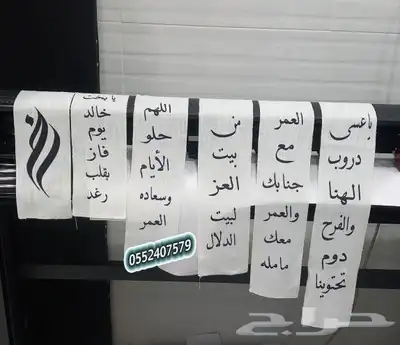 ياعسى
دروب
الهنا
والفرح
دوم
تحتوينا
العمر
مع
جنابك
والعمر
معك
مامله
من
بيت
العز
لبيت
الدلال
اللهم
حلو
الأيام
وسعاده
العمر
يا بخت
خالد
يوم
فاز
بقلب
رغد
0552407579
حراج